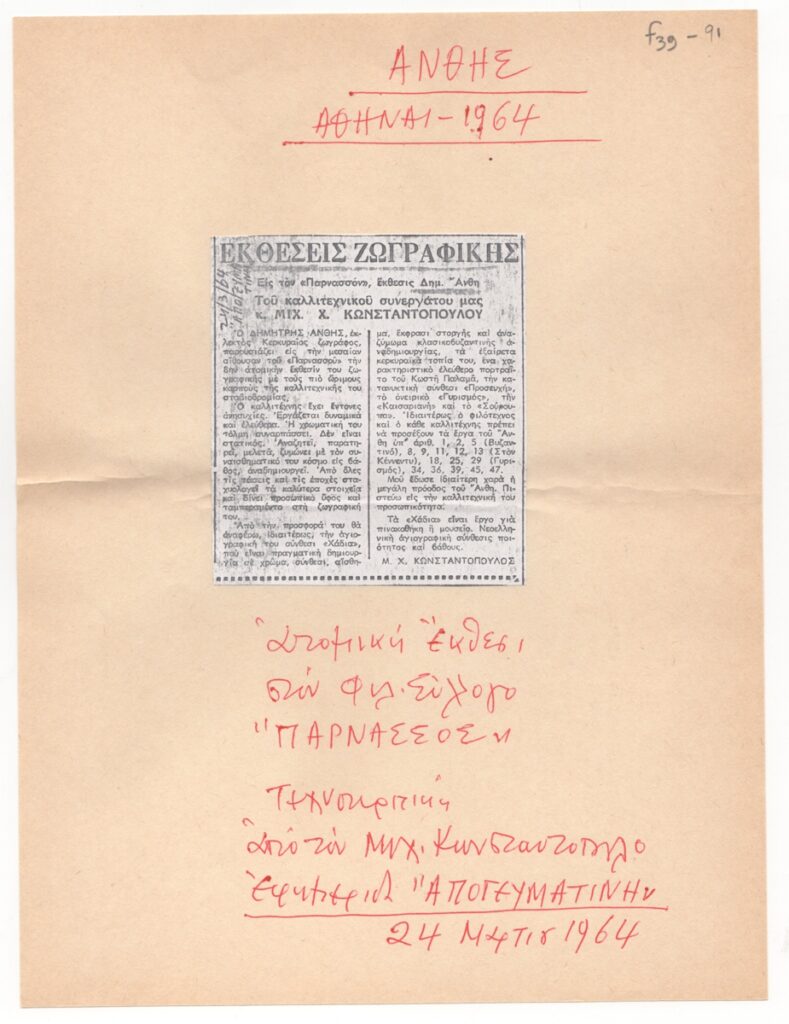 f39 - 91
ΑΝΘΗΣ
ΑΘΗΝΑΙ-1964
ΕΚΘΕΣΕΙΣ ΖΩΓΡΑΦΙΚΗΣ
24/3/64
Εἰς τὸν «Παρνασσόν», ἔκθεσις Δημ. Ἄνθη
Τοῦ καλλιτεχνικοῦ συνεργάτου μας
κ. ΜΙΧ. Χ. ΚΩΝΣΤΑΝΤΟΠΟΥΛΟΥ
Ὁ ΔΗΜΗΤΡΗΣ ΑΝΘΗΣ, ἐκ-
λεκτὸς Κερκυραῖος ζωγράφος,
παρουσιάζει εἰς τὴν μεσαίαν
αἴθουσαν τοῦ «Παρνασσοῦ» τὴν
8ην ἀτομικὴν ἔκθεσίν του ζω-
γραφικῆς μὲ τοὺς πιὸ ὥριμους
καρποὺς τῆς καλλιτεχνικῆς του
σταδιοδρομίας.
Ὁ καλλιτέχνης ἔχει ἔντονες
ἀνησυχίες. Ἐργάζεται δυναμικὰ
καὶ ἐλεύθερα. Ἡ χρωματική του
τόλμη συναρπάσσει. Δὲν εἶναι
στατικός. Ἀναζητεῖ, παρατη-
ρεῖ, μελετᾶ, ζυμώνει μὲ τὸν συ-
ναισθηματικό του κόσμο εἰς βά-
θος, ἀναδημιουργεῖ. Ἀπὸ ὅλες
τὶς τάσεις καὶ τὶς ἐποχὲς στα-
χυολογεῖ τὰ καλύτερα στοιχεῖα
καὶ δίνει προσωπικὸ ὕφος καὶ
ταμπεραμέντο στὴ ζωγραφική
του.
Ἀπὸ τὴν προσφορά του θὰ
ἀναφέρω, ἰδιαιτέρως, τὴν ἁγιο-
γραφική του σύνθεσι «Χάδια»,
ποὺ εἶναι πραγματικὴ δημιουρ-
γία σὲ χρῶμα, σύνθεσι, αἴσθη-
μα, ἔκφρασι στοργῆς καὶ ἀνα-
ζύμωμα κλασικοβυζαντινῆς ἀ-
ναδημιουργίας, τὰ ἐξαίρετα
κερκυραϊκὰ τοπία του, ἕνα χα-
ρακτηριστικὸ ἐλεύθερο πορτραῖ-
το τοῦ Κωστῆ Παλαμᾶ, τὴν κα-
τανυκτικὴ σύνθεσι «Προσευχή»,
τὸ ὀνειρικὸ «Γυρισμός», τὴν
«Καισαριανή» καὶ τὸ «Σούρου-
πο». Ἰδιαιτέρως ὁ φιλότεχνος
καὶ ὁ κάθε καλλιτέχνης πρέπει
νὰ προσέξουν τὰ ἔργα τοῦ Ἄν-
θη ὑπ' ἀριθ. 1, 2, 5 (Βυζαν-
τινό), 8, 9, 11, 12, 13 (Στὸν
Κέννεντυ), 18, 25, 29 (Γυρι-
σμός), 34, 36, 39, 45, 47.
Μοῦ ἔδωσε ἰδιαίτερη χαρὰ ἡ
μεγάλη πρόοδος τοῦ Ἄνθη. Πι-
στεύω εἰς τὴν καλλιτεχνική του
προσωπικότητα.
Τὰ «Χάδια» εἶναι ἔργο γιὰ
πινακοθήκη ἢ μουσεῖο. Νεοελλη-
νικὴ ἁγιογραφικὴ σύνθεσις ποι-
ότητος καὶ βάθους.
Μ. Χ. ΚΩΝΣΤΑΝΤΟΠΟΥΛΟΣ
Ἀτομικὴ Ἔκθεσι
στὸν Φιλ. Σύλλογο
"ΠΑΡΝΑΣΣΟΣ"
Τεχνοκριτικὴ
Ἀπὸ τὸν Μιχ. Κωνσταντόπουλο
Ἐφημερίδα "ΑΠΟΓΕΥΜΑΤΙΝΗ"
24 Μαρτίου 1964